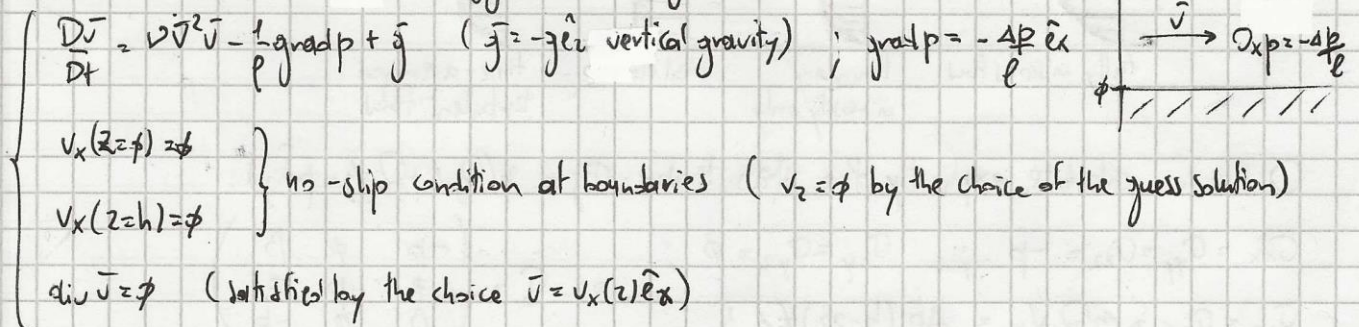 Dv̄/Dt = ν∇̄²v̄ - 1/ρ grad p + ḡ ( ḡ = -gê_z vertical gravity) ; grad p = - Δp/ℓ ê_x
v̄ → ∂_x p = -Δp/ℓ
ϕ
v_x(z=ϕ) = ϕ
no-slip condition at boundaries ( v_z = ϕ by the choice of the guess solution)
v_x(z=h) = ϕ
div v̄ = ϕ (satisfied by the choice v̄ = v_x(z)ê_x)